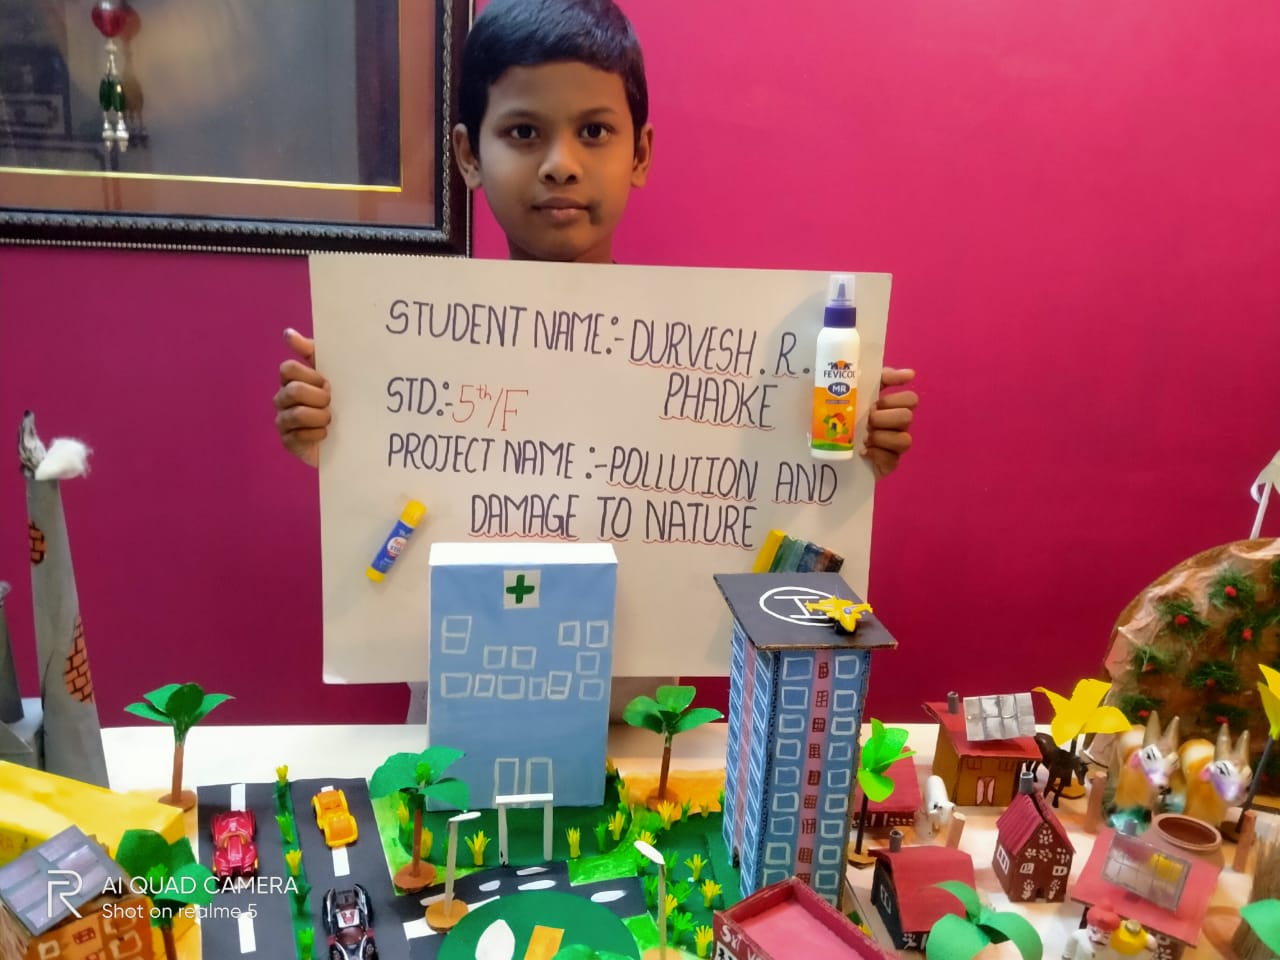 STUDENT NAME:- DURVESH . R.
PHADKE
STD:- 5th/F
PROJECT NAME :- POLLUTION AND
DAMAGE TO NATURE
FEVICOL
MR
H
AI QUAD CAMERA
Shot on realme 5